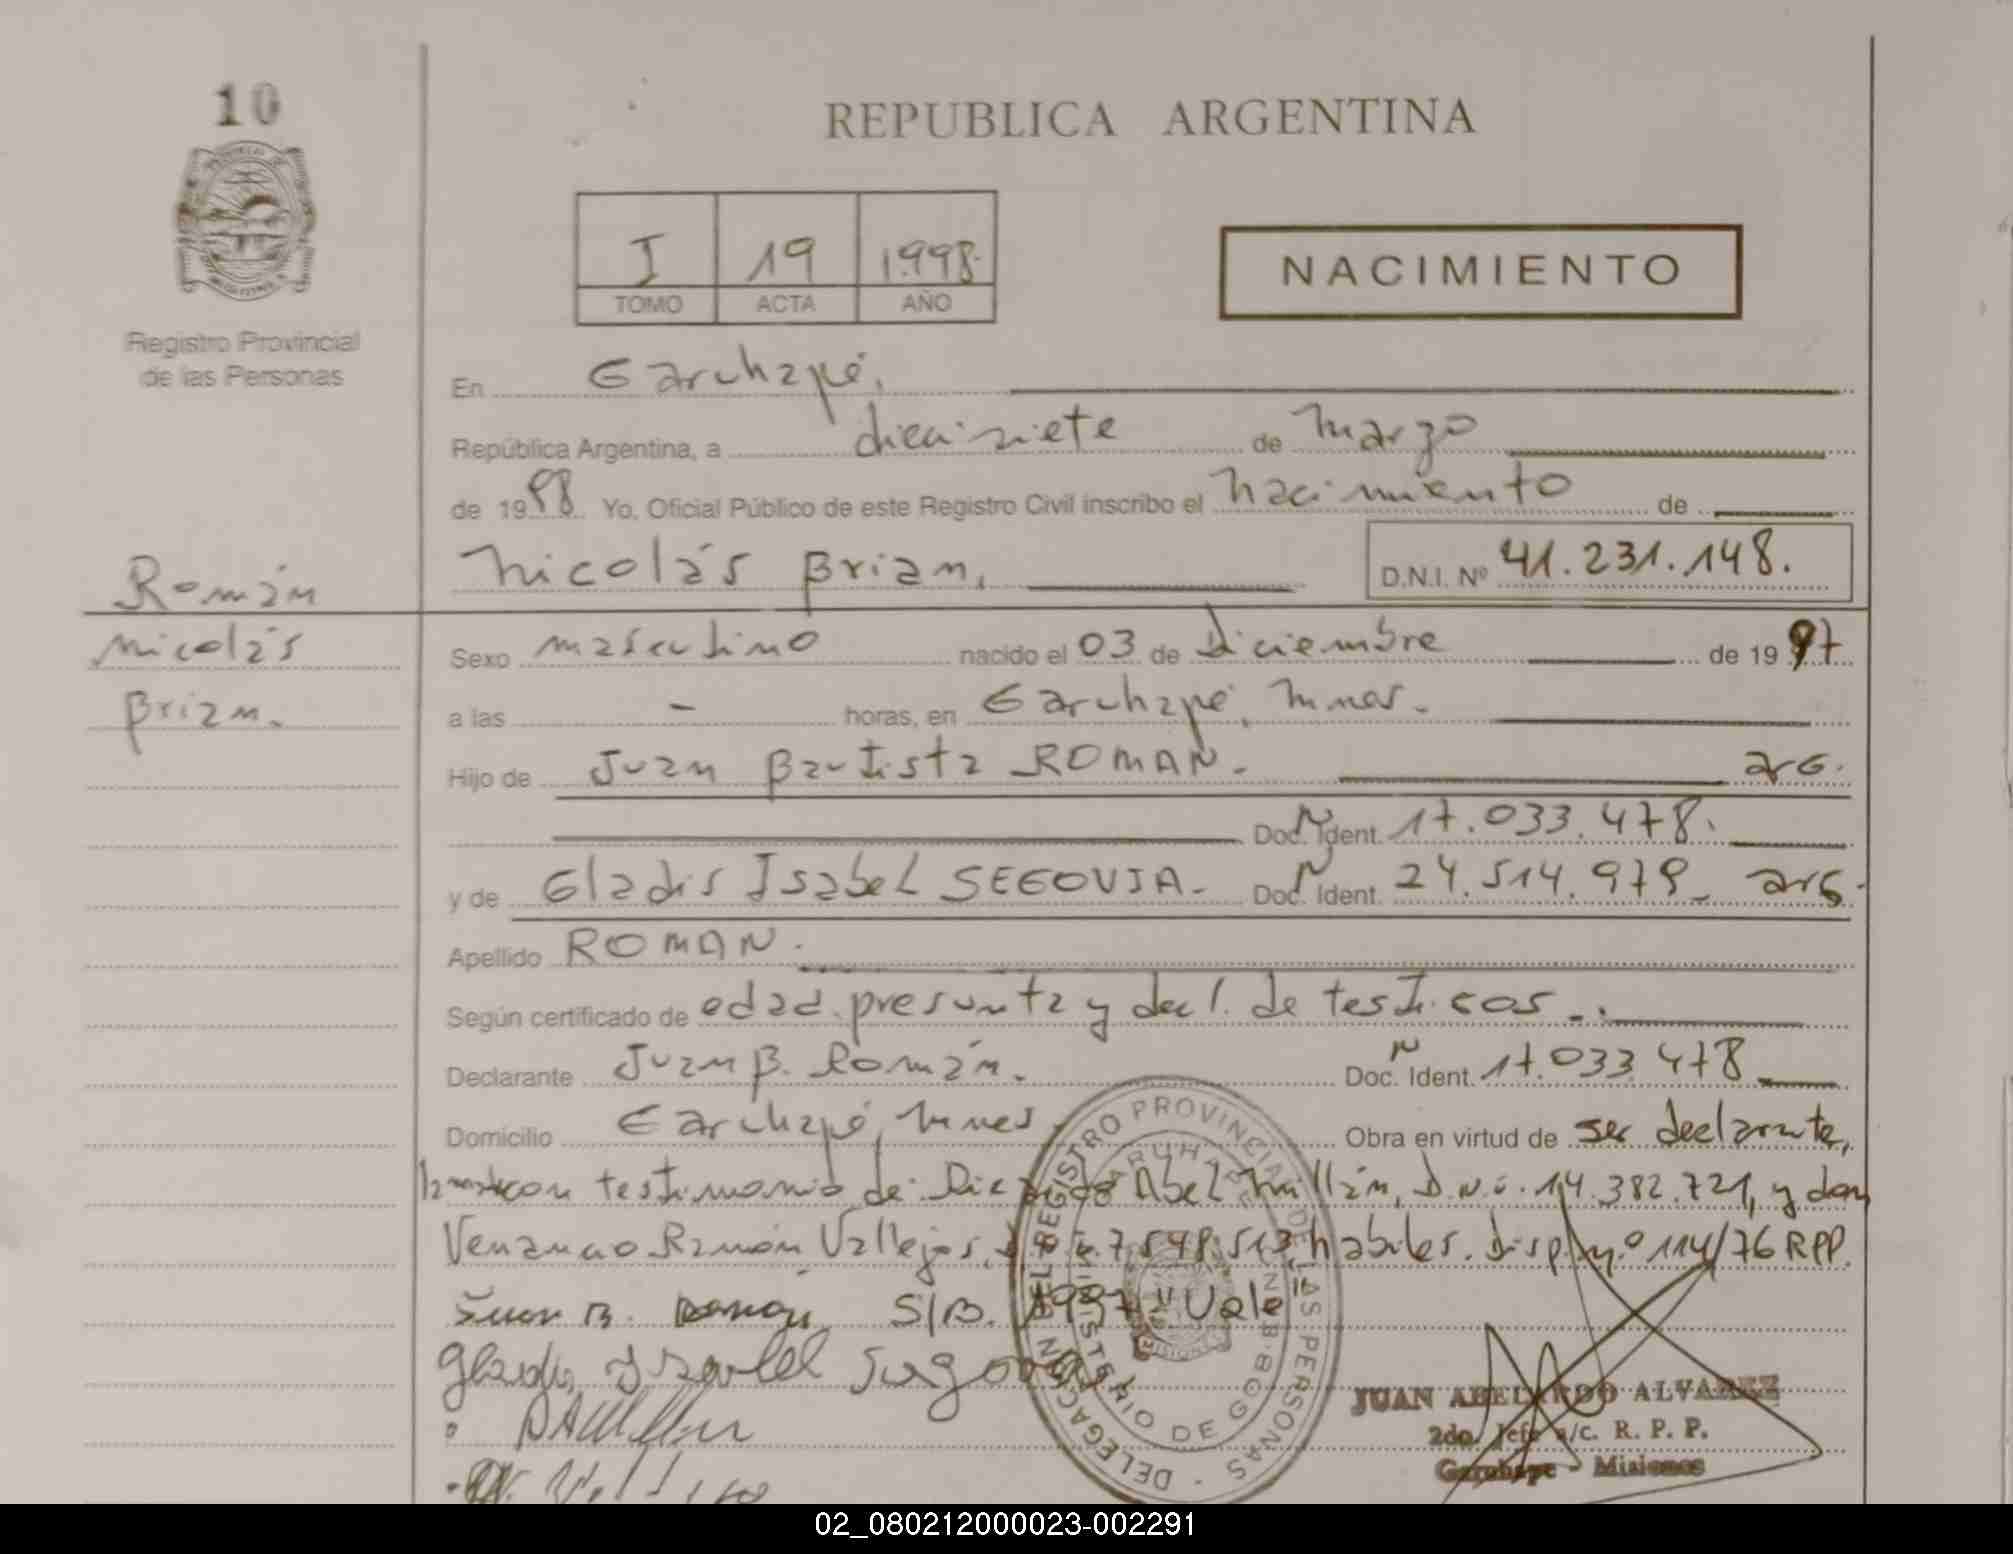 10
REPUBLICA ARGENTINA
I 19 1.998.
TOMO ACTA AÑO
NACIMIENTO
Registro Provincial
de las Personas
En Garuhapé,
República Argentina, a diecisiete de marzo
de 1998 Yo, Oficial Público de este Registro Civil inscribo el nacimiento de
Nicolás Brian, D.N.I. Nº 41.231.148.
Román
Nicolás
Brian.
Sexo masculino nacido el 03 de diciembre de 1997
a las - horas, en Garuhapé, Mnes.
Hijo de Juan Bautista ROMAN. arg.
Doc. Ident. 17.033.478.
y de Gladis Isabel SEGOVIA. Doc. Ident. 24.514.979 arg.
Apellido ROMAN.
Según certificado de edad presunta y decl. de testigos.
Declarante Juan B. Román. Doc. Ident. 17.033.478
Domicilio Garuhapé, Mnes Obra en virtud de ser declarante,
con testimonio de: Abel Millán, D.N.i. 14.382.721, y don
Venancio Ramón Vallejos, 7.548.513 habiles. Disp. nº 114/76 RPP.
Juan B. Román S/B. 1997 "Vale"
Gladis Isabel Segovia
DELEGACION DEL REGISTRO PROVINCIAL DE LAS PERSONAS
GARUHAPE
MINISTERIO DE GOB.
MISIONES
JUAN ABELARDO ALVAREZ
2do. Jefe a/c. R. P. P.
Garuhape - Misiones
02_080212000023-002291